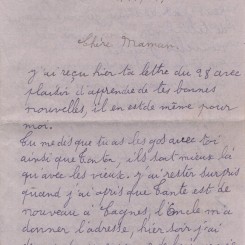 Chère Maman,
J'ai reçu hier ta lettre du 28 avec
plaisir d'apprendre de tes bonnes
nouvelles, il en est de même pour
moi.
Tu me des que tu as les gos avec toi
ainsi que Tonton, ils sont mieux là
qu'avec les vieux. J'ai rester surpris
quand j'ai apris que Tante est de
nouveau à Cagnes, l'Oncle m'a
donner l'adresse, hier soir j'ai